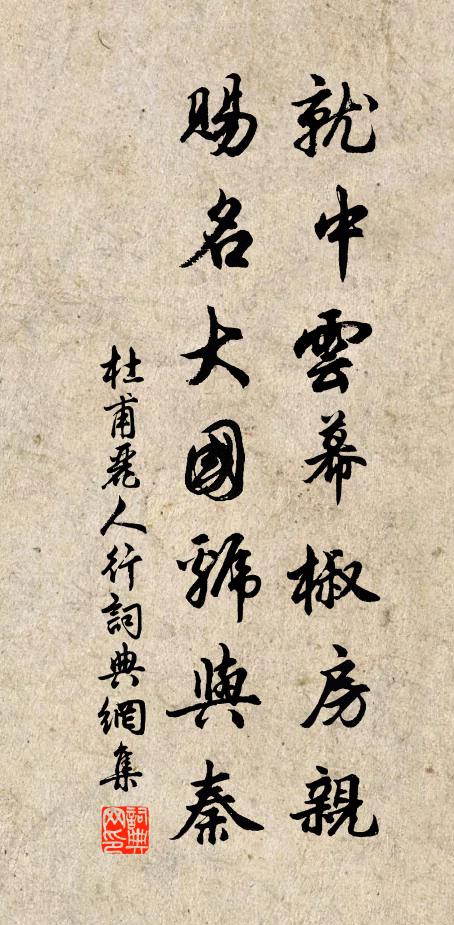 就中雲幕椒房親
賜名大國虢與秦
杜甫麗人行詞典網集
詞典网印